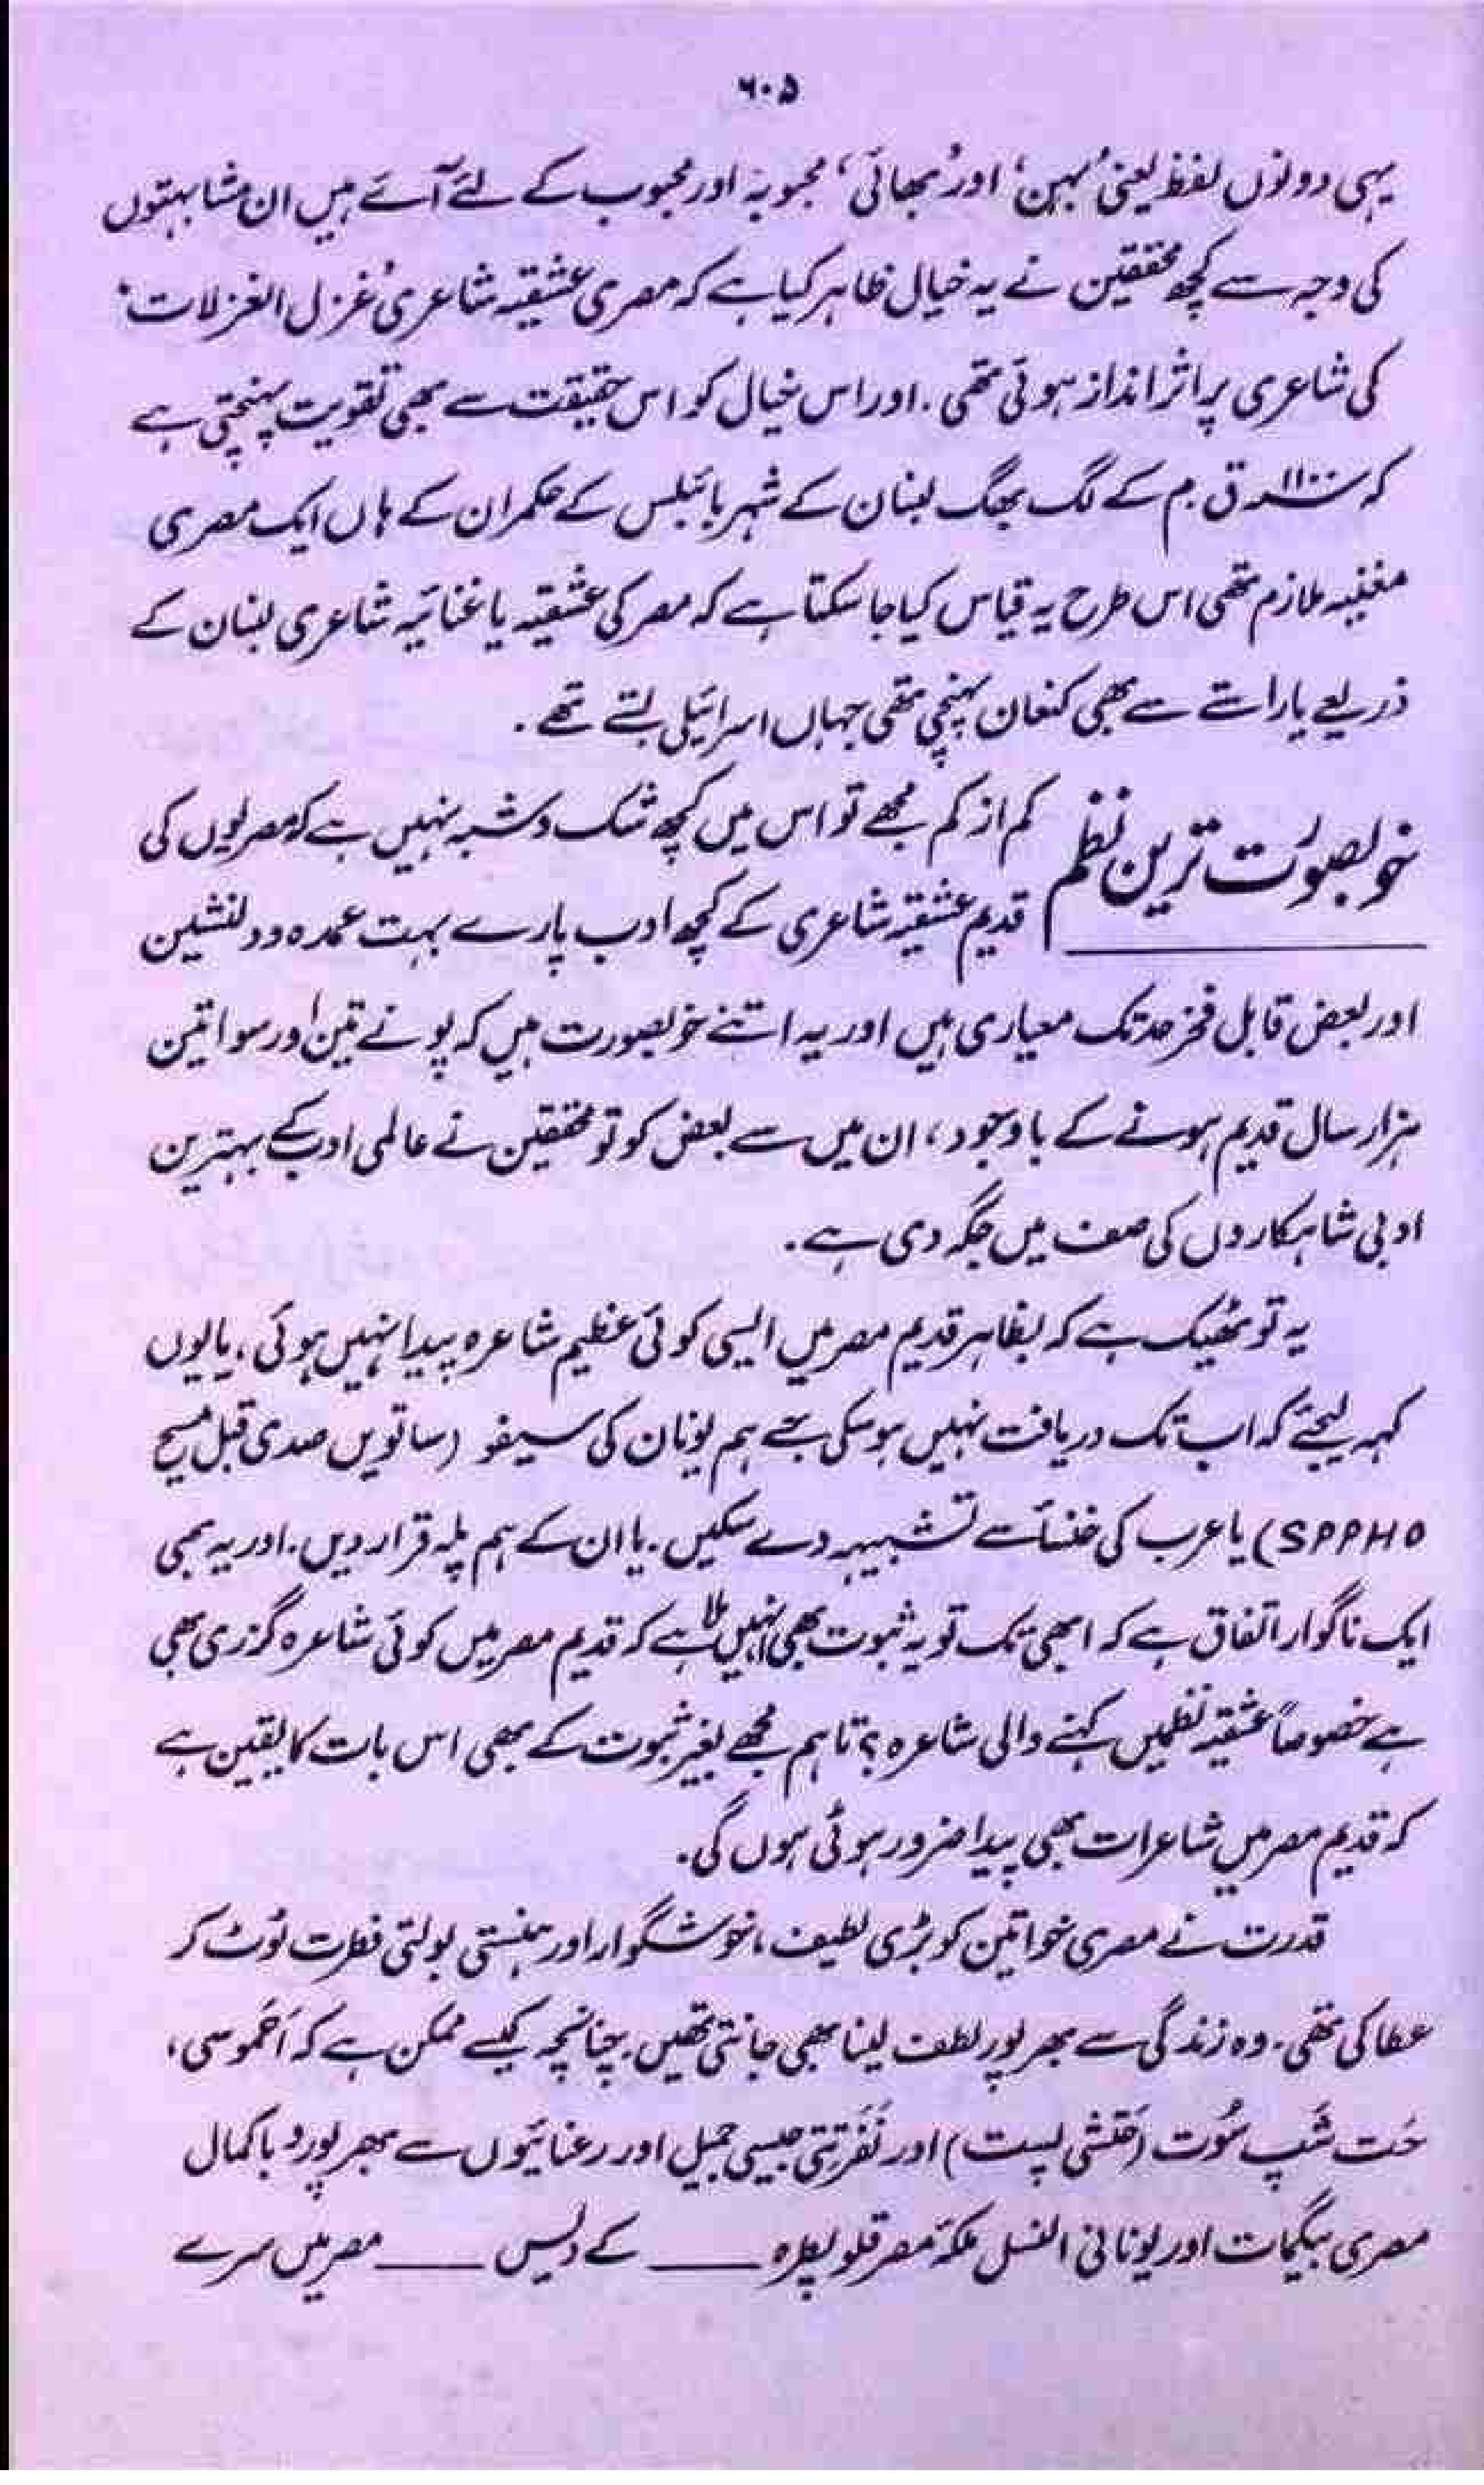 ۶۰۵
یہی دونوں لفظ یعنی 'بہن' اور 'بھائی' محبوبہ اور محبوب کے لئے آئے ہیں ان مشابہتوں
کی وجہ سے کچھ محققین نے یہ خیال ظاہر کیا ہے کہ مصری عشقیہ شاعری 'غزل الغزلات'
کی شاعری پر اثر انداز ہوئی تھی۔ اور اس خیال کو اس حقیقت سے بھی تقویت پہنچتی ہے
کہ ۱۱۰۰ ق۔م کے لگ بھگ لبنان کے شہر بائبلس کے حکمران کے ہاں ایک مصری
مغنیہ ملازم تھی اس طرح یہ قیاس کیا جا سکتا ہے کہ مصر کی عشقیہ یا غنائیہ شاعری لبنان کے
ذریعے یا راستے سے بھی کنعان پہنچی تھی جہاں اسرائیلی بستے تھے۔
خوبصورت ترین نظم
کم از کم مجھے تو اس میں کچھ شک و شبہ نہیں ہے کہ مصریوں کی
قدیم عشقیہ شاعری کے کچھ ادب پارے بہت عمدہ و دلنشین
اور بعض قابل فخر حد تک معیاری ہیں اور یہ اتنے خوبصورت ہیں کہ پونے تین اور سوا تین
ہزار سال قدیم ہونے کے باوجود، ان میں سے بعض کو تو محققین نے عالمی ادب کے بہترین
ادبی شاہکاروں کی صف میں جگہ دی ہے۔
یہ تو ٹھیک ہے کہ بظاہر قدیم مصر میں ایسی کوئی عظیم شاعرہ پیدا نہیں ہوئی، یا یوں
کہہ لیجئے کہ اب تک دریافت نہیں ہو سکی جسے ہم یونان کی سیفو (ساتویں صدی قبل مسیح
SPPHO) یا عرب کی خنساؔ سے تشبیہہ دے سکیں۔ یا ان کے ہم پلہ قرار دیں۔ اور یہ بھی
ایک ناگوار اتفاق ہے کہ ابھی تک تو یہ ثبوت بھی نہیں ملا ہے کہ قدیم مصر میں کوئی شاعرہ گزری بھی
ہے خصوصاً عشقیہ نظمیں کہنے والی شاعرہ؟ تاہم مجھے بغیر ثبوت کے بھی اس بات کا یقین ہے
کہ قدیم مصر میں شاعرات بھی پیدا ضرور ہوئی ہوں گی۔
قدرت نے مصری خواتین کو بڑی لطیف، خوشگوار اور ہنستی بولتی فطرت ٹوٹ کر
عطا کی تھی۔ وہ زندگی سے بھرپور لطف لینا بھی جانتی تھیں۔ چنانچہ کیسے ممکن ہے کہ اَحَموسی،
حَت شَپ سُوت (حتشی پست) اور نَفَرتِیتی جیسی جمیل اور رعنائیوں سے بھرپور و باکمال
مصری بیگمات اور یونانی النسل ملکۂ مصر قلوپطرہ ـــــ کے دیس ـــــ مصر میں سرے